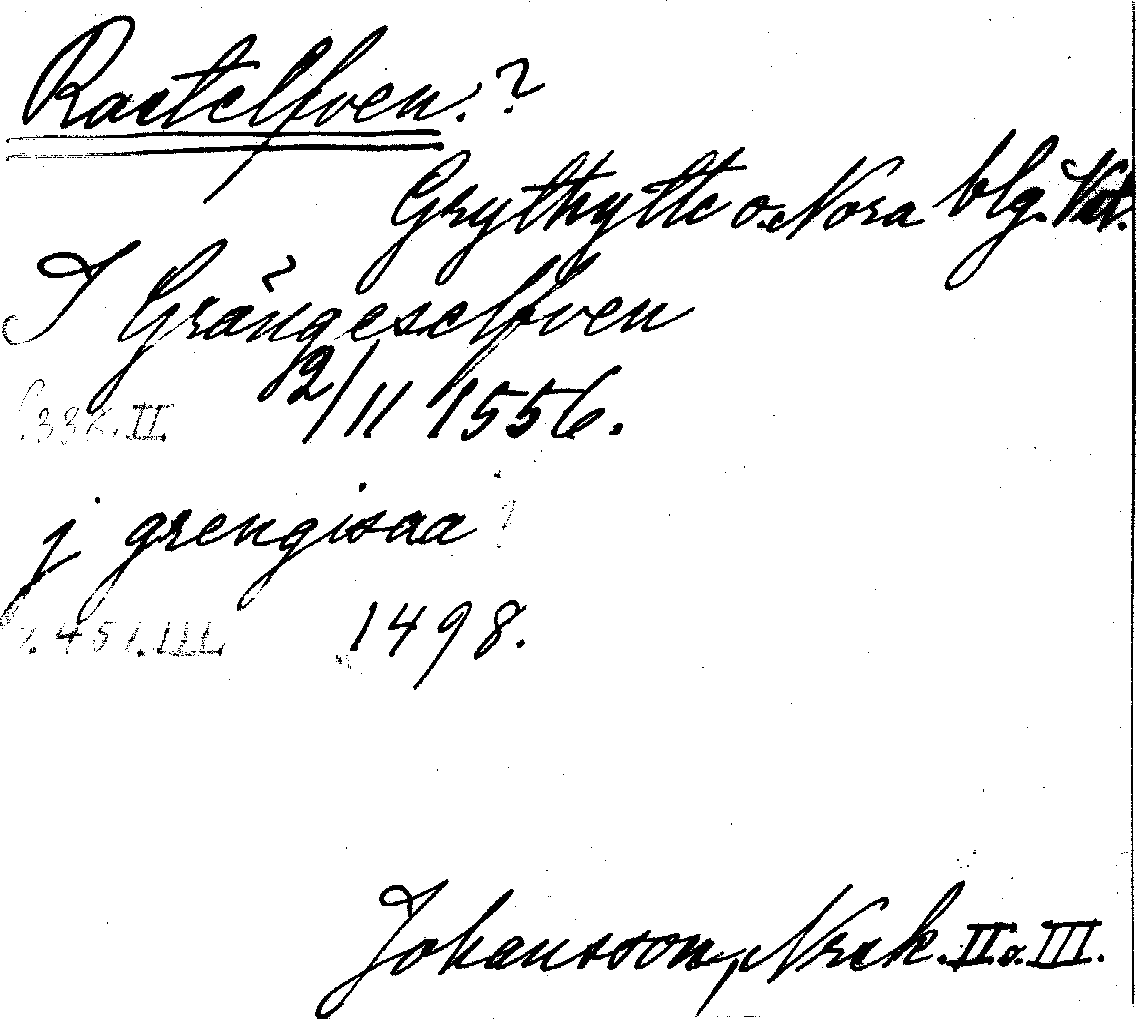 Rastelfven. ?
Grythytte o. Nora blg. Vstm.
I Grängeselfven
s. 338. II. 12/11 1556.
j grengisaa ?
s. 451. III. 1498.
Johansson, Nrak. II. o. III.